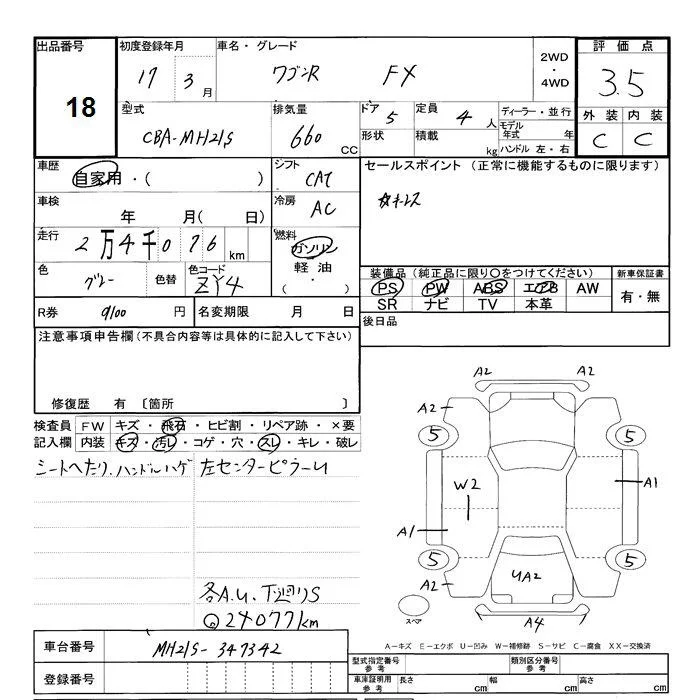 出品番号 18
初度登録年月 17 3月
車名・グレード ワゴンR FX
2WD・4WD
評価点 3.5
型式 CBA-MH21S
排気量 660 CC
ドア 5
形状
定員 4人
積載 kg
ディーラー・並行
モデル年式 年
ハンドル 左・右
外装 C 内装 C
車歴 自家用・( )
シフト CAT
セールスポイント (正常に機能するものに限ります)
キーレス
車検 年 月( 日)
冷房 AC
走行 2万4千076km
燃料 ガソリン 軽油・( )
色 グレー 色替 色コード ZY4
装備品(純正品に限り○をつけてください)
PS PW ABS エアB AW
SR ナビ TV 本革
新車保証書 有・無
R券 9100 円
名変期限 月 日
後日品
注意事項申告欄(不具合内容等は具体的に記入して下さい)
修復歴 有 〔箇所 〕
検査員記入欄
FW キズ・飛石・ヒビ割・リペア跡・×要
内装 キズ・汚レ・コゲ・穴・スレ・キレ・破レ
シートヘたり.ハンドルハゲ 左センターピラーU
各A.U、下廻りS
Q 24077km
A2 A2
A2
5 5
W2
A1
A1
5 5
A2
UA2
A4
スペア
A−キズ E−エクボ U−凹み W−補修跡 S−サビ C−腐食 XX−交換済
車台番号 MH21S-347342
登録番号
型式指定番号参考
類別区分番号参考
車庫証明用参考 長さ cm 幅 cm 高さ cm